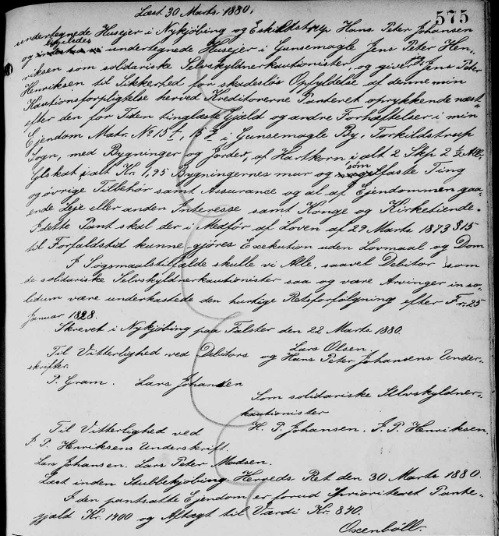 Læst 30 Marts 1880.
575
undertegnede Husejer i Nykjøbing og Eskildstrup Hans Peter Johansen
og undertegnede Husejer i Gunsemagle Jens Peter Hen-
riksen som solidariske Selvskyldnerkautionister, og giver Jens Peter
Henriksen til Sikkerhed for skadesløs Opfyldelse af denne min
Kautionsforpligtelse herved Kreditorerne Panteret oprykkende næst
efter den for Tiden tinglæste Gjæld og andre Forhæftelser i min
Ejendom Matr. No 15 i Gunsemagle By, Torkildstrup
Sogn, med Bygninger og Jorder, af Hartkorn i alt 2 Skp. 2 Alb.
Gl. skat i alt Kr. 1,95 Bygningernes mur og sømfaste Ting
og øvrige Tilbehør samt Assurance og al af Ejendommen gaa-
ende Leje eller anden Interesse samt Konge og Kirketiende.
I dette Pant skal der i Medfør af Loven af 29 Marts 1873 § 15
til Forfaldstid kunne gjøres Exekution uden Lovmaal og Dom
I Søgsmaalstilfælde skulle vi Alle, saavel Debitor som
de solidariske Selvskyldnerkautionister saa og være Arvinger in so-
lidum være underkastede den hurtige Retsforfølgning efter Fr. 25
Januar 1828.
Skrevet i Nykjøbing paa Falster den 22 Marts 1880.
Lars Olsen
Til Vitterlighed ved Debitors og Hans Peter Johansens Under-
skrifter.
P. Gram. Lars Johansen
Som solidariske Selvskyldner-
kautionister
Til Vitterlighed ved H. P. Johansen. J. P. Henriksen.
J. P. Henriksens Underskrift.
Lars Johansen. Lars Peter Madsen.
Læst inden Stubbekjøbing Herreds Ret den 30 Marts 1880.
I den pantsatte Ejendom er forud prioriteret Pante-
gjæld Kr. 1400 og Aftægt til Værdi Kr. 840.
Oxenböll.